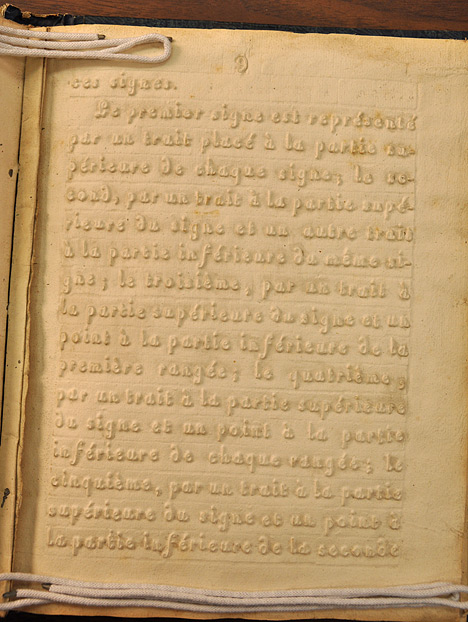 ces signes.
Le premier signe est représenté
par un trait placé à la partie su-
périeure de chaque signe; le se-
cond, par un trait à la partie supé-
rieure du signe et un autre trait
à la partie inférieure du même si-
gne; le troisième, par un trait à
la partie supérieure du signe et un
point à la partie inférieure de la
première rangée; le quatrième,
par un trait à la partie supérieure
du signe et un point à la partie
inférieure de chaque rangée; le
cinquième, par un trait à la partie
supérieure du signe et un point à
la partie inférieure de la seconde